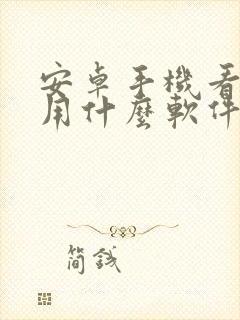 安卓手機看
用什麼軟件
簡錢